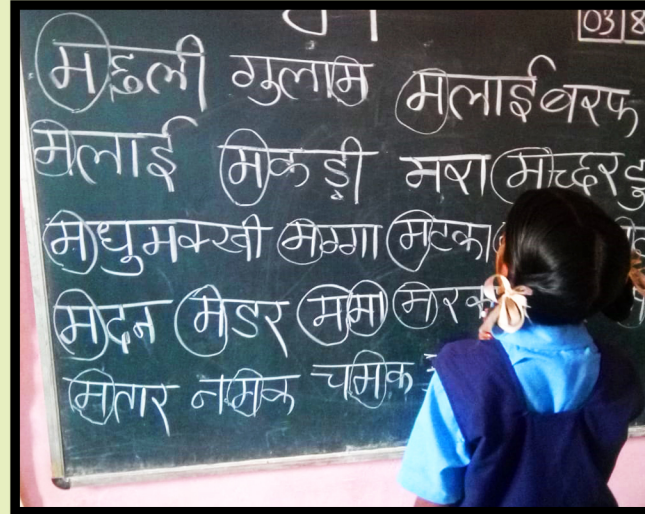 03 8
मछली गुलाम मलाईबरफ
मलाई मकड़ी मरा मच्छर
मधुमक्खी मग्गा मटका
मदन मेडर मामी
मतार नमक चमक